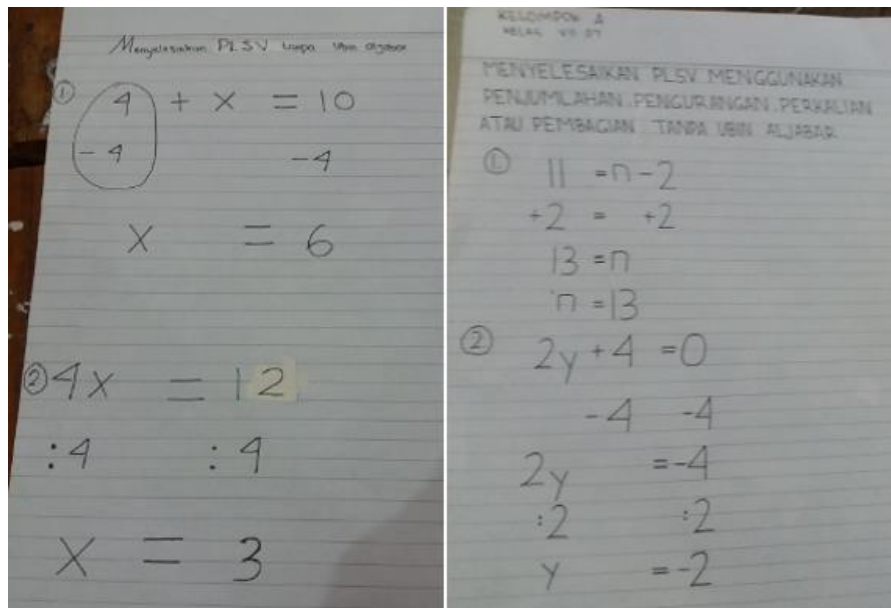 Menyelesaikan PLSV tanpa Ubin aljabar
① 4 + x = 10
-4 -4
x = 6
② 4x = 12
:4 :4
x = 3
KELOMPOK A
KELAS VII D7
MENYELESAIKAN PLSV MENGGUNAKAN
PENJUMLAHAN, PENGURANGAN, PERKALIAN
ATAU PEMBAGIAN TANPA UBIN ALJABAR
① 11 = n - 2
+2 = +2
13 = n
n = 13
② 2y + 4 = 0
-4 -4
2y = -4
:2 :2
y = -2